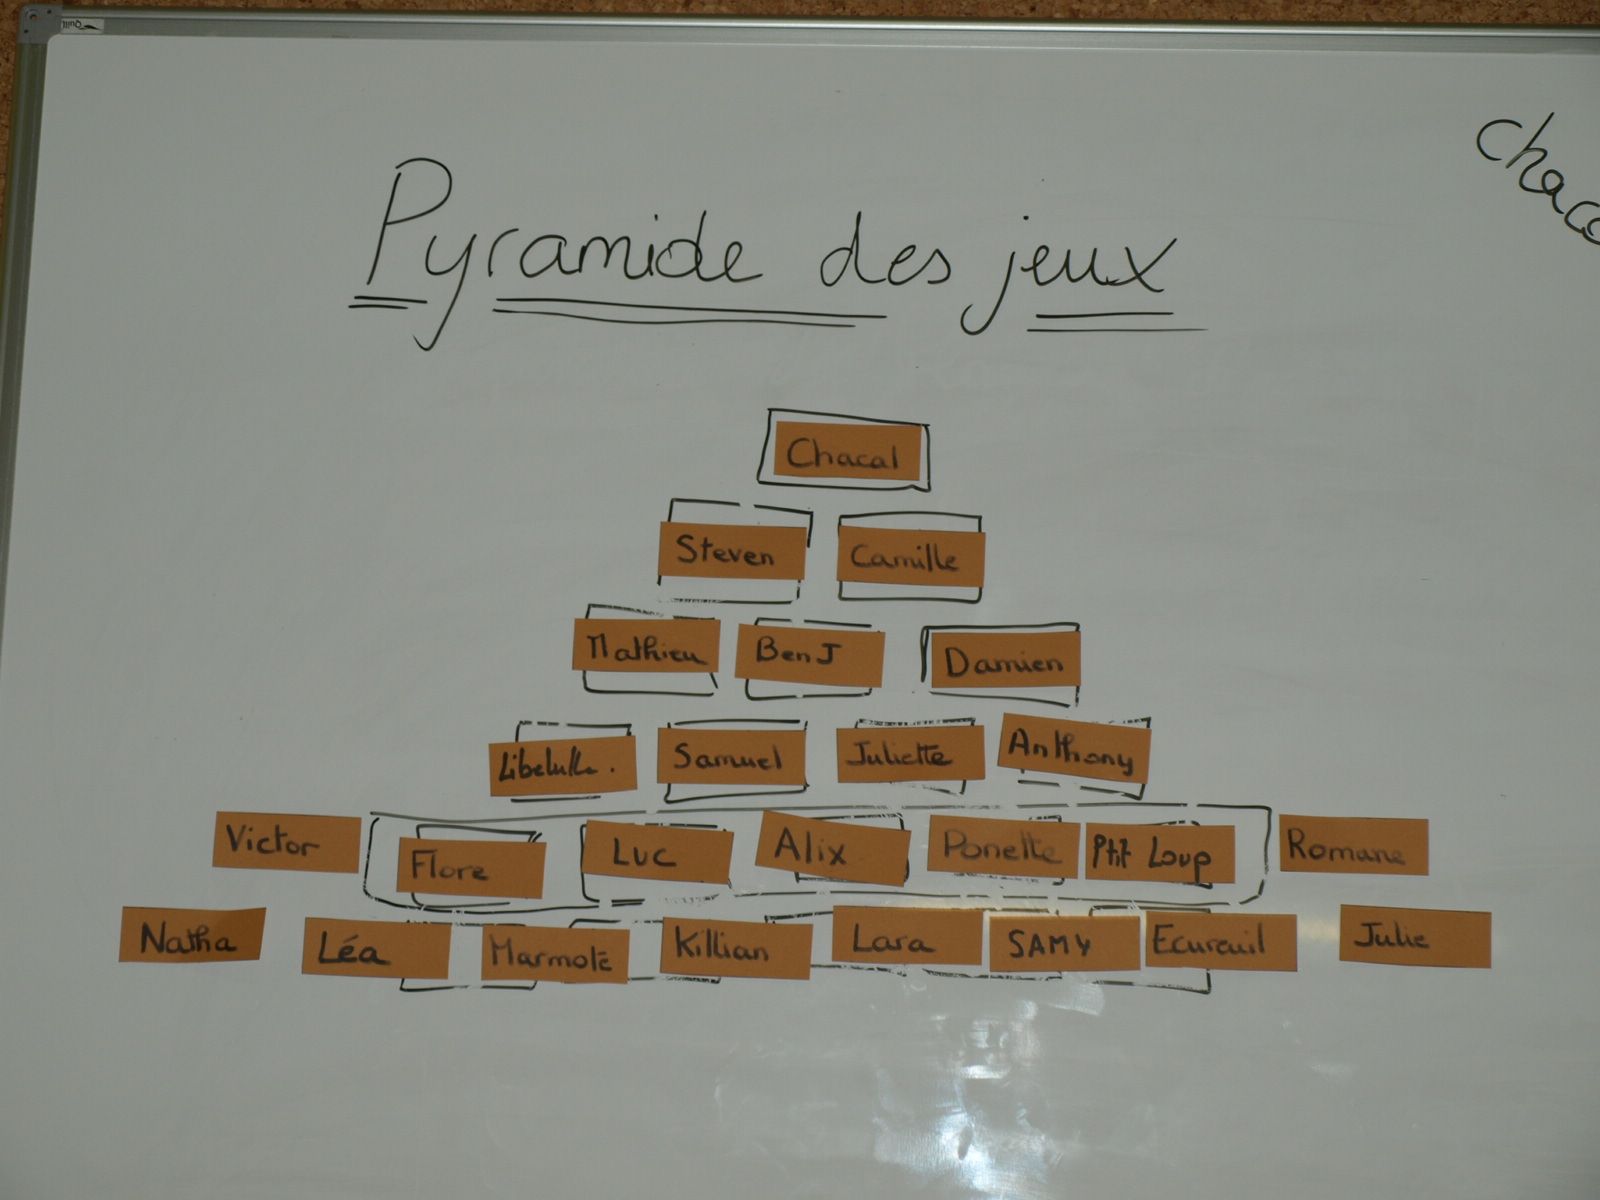 Pyramide des jeux
Chacal
Steven Camille
Mathieu BenJ Damien
Libelulle. Samuel Juliette Anthony
Victor Flore Luc Alix Ponette Ptit Loup Romane
Natha Léa Marmote Killian Lara SAMY Ecureuil Julie